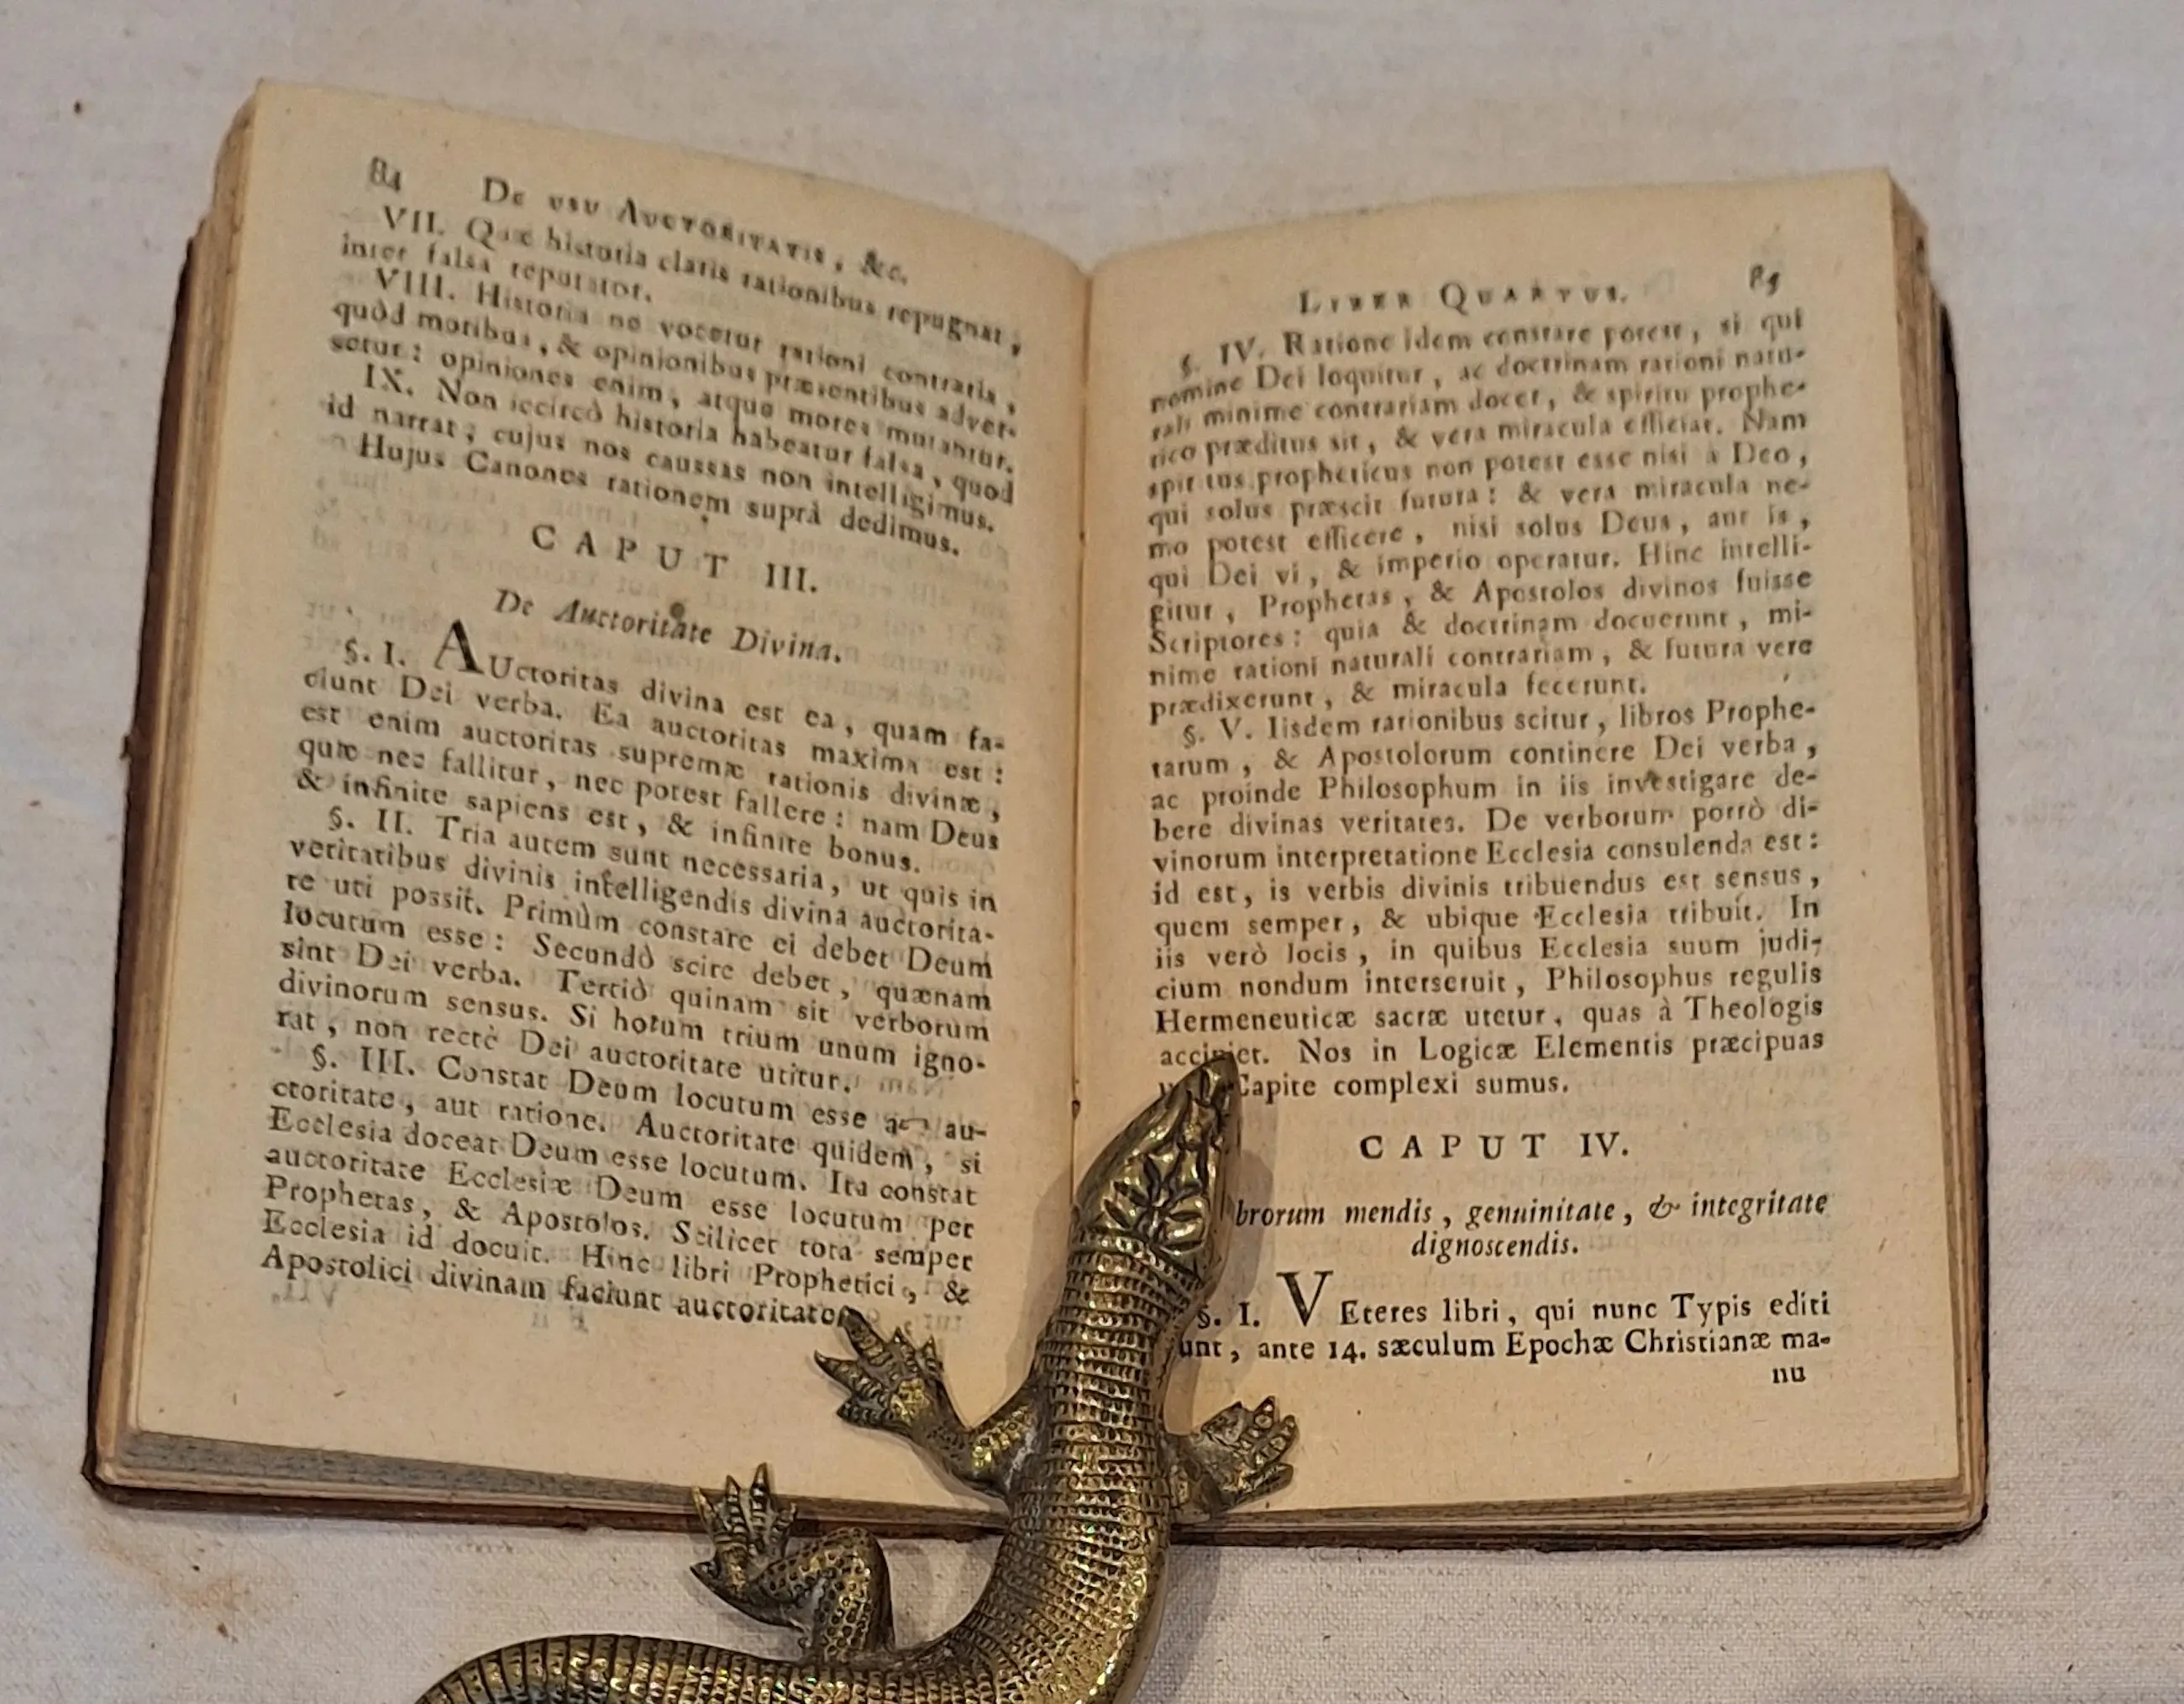 84 De usu Auctoritatis, &c.
VII. Quæ historia claris rationibus repugnat,
inter falsa reputator.
VIII. Historia ne vocetur rationi contraria,
quòd moribus, & opinionibus præsentibus adver-
setur: opiniones enim, atque mores mutantur.
IX. Non iccircò historia habeatur falsa, quod
id narrat, cujus nos caussas non intelligimus.
Hujus Canones rationem suprà dedimus.
CAPUT III.
De Auctoritate Divina.
§. I. AUctoritas divina est ea, quam fa-
ciunt Dei verba. Ea auctoritas maxima est:
est enim auctoritas supremæ rationis divinæ,
quæ nec fallitur, nec potest fallere: nam Deus
& infinite sapiens est, & infinite bonus.
§. II. Tria autem sunt necessaria, ut quis in
veritatibus divinis intelligendis divina auctorita-
te uti possit. Primùm constare ei debet Deum
locutum esse: Secundò scire debet, quænam
sint Dei verba. Tertiò quinam sit verborum
divinorum sensus. Si horum trium unum igno-
rat, non rectè Dei auctoritate utitur.
§. III. Constat Deum locutum esse au-
ctoritate, aut ratione. Auctoritate quidem, si
Ecclesia doceat Deum esse locutum. Ita constat
auctoritate Ecclesiæ Deum esse locutum per
Prophetas, & Apostolos. Scilicet tota semper
Ecclesia id docuit. Hinc libri Prophetici, &
Apostolici divinam faciunt auctoritate
Liber Quartus. 85
§. IV. Ratione idem constare potest, si qui
nomine Dei loquitur, ac doctrinam rationi natu-
rali minime contrariam docet, & spiritu prophe-
tico præditus sit, & vera miracula efficiat. Nam
spir tus propheticus non potest esse nisi à Deo,
qui solus præscit futura: & vera miracula ne-
mo potest efficere, nisi solus Deus, aut is,
qui Dei vi, & imperio operatur. Hinc intelli-
gitur, Prophetas, & Apostolos divinos fuisse
Scriptores: quia & doctrinam docuerunt, mi-
nime rationi naturali contrariam, & futura vere
prædixerunt, & miracula fecerunt.
§. V. Iisdem rationibus scitur, libros Prophe-
tarum, & Apostolorum continere Dei verba,
ac proinde Philosophum in iis investigare de-
bere divinas veritates. De verborum porrò di-
vinorum interpretatione Ecclesia consulenda est:
id est, is verbis divinis tribuendus est sensus,
quem semper, & ubique Ecclesia tribuit. In
iis verò locis, in quibus Ecclesia suum judi-
cium nondum interseruit, Philosophus regulis
Hermeneuticæ sacræ utetur, quas à Theologis
accipiet. Nos in Logicæ Elementis præcipuas
Capite complexi sumus.
CAPUT IV.
brorum mendis, genuinitate, & integritate
dignoscendis.
§. I. VEteres libri, qui nunc Typis editi
unt, ante 14. sæculum Epochæ Christianæ ma-
nu